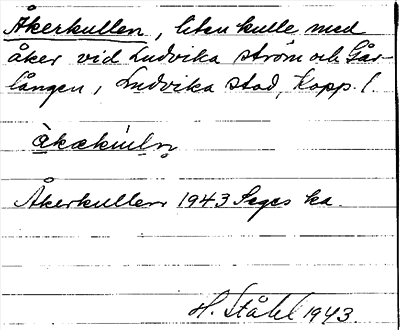 Åkerkullen, liten kulle med
åker vid Ludvika ström och Går-
lången, Ludvika stad, Kopp. l.
Åkerkullen 1943 Sages ha.
H. Ståhl 1943.